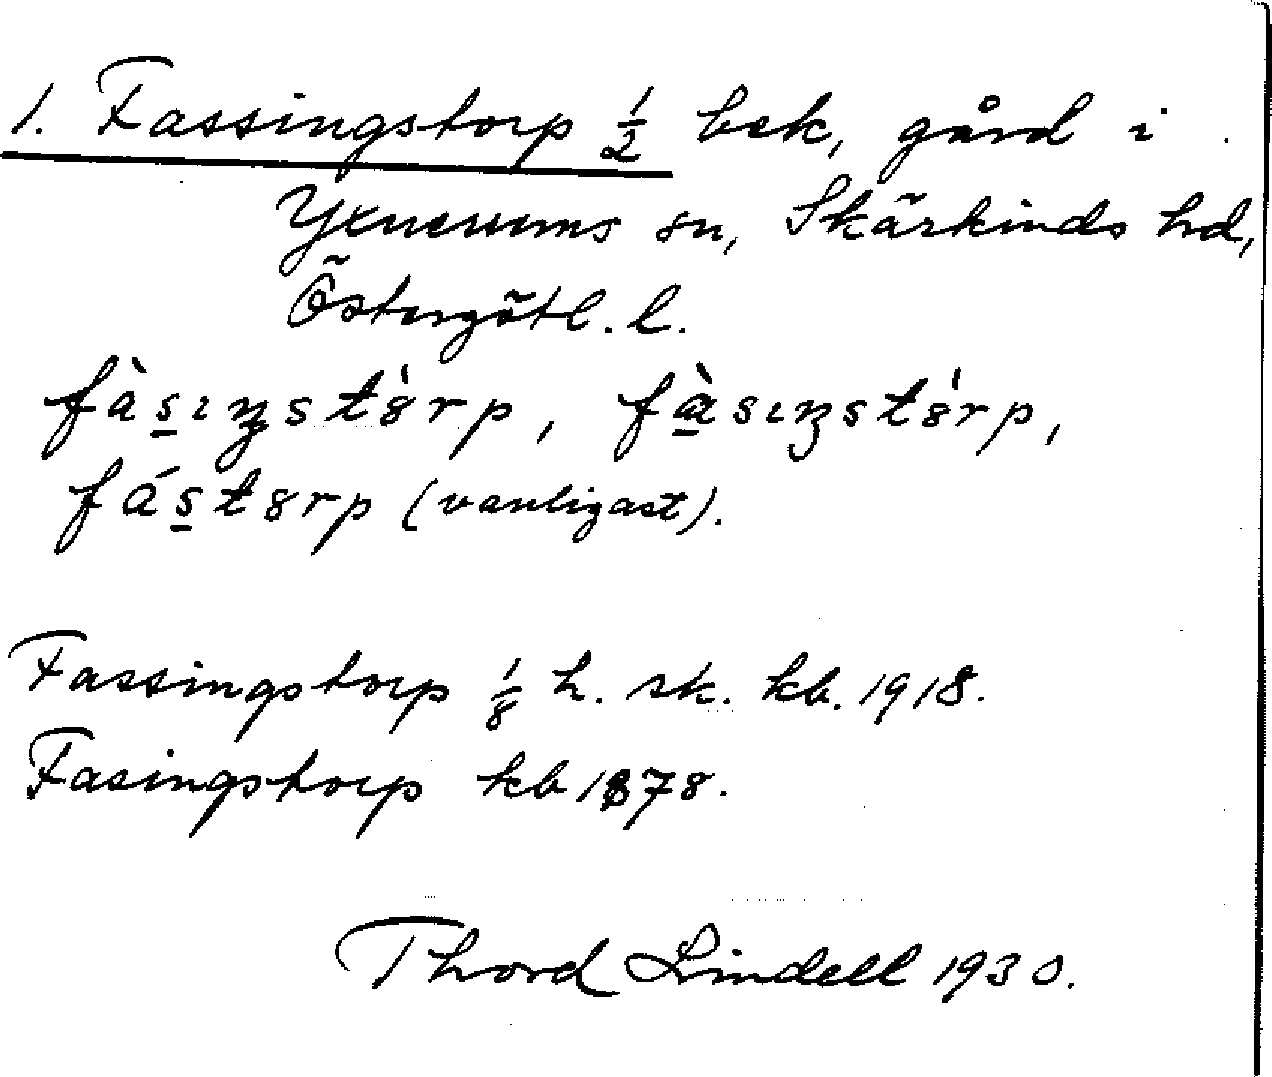 1. Fassingstorp ½ bek, gård i
Yxnerums sn, Skärkinds hd,
Östergötl. l.
fàs̲ıŋstȣ́rp, fàsıŋstȣ́rp,
fás̲tȣrp (vanligast).
Fassingstorp ⅛ h. sk. kb. 1918.
Fasingstorp kb 1878.
Thord Lindell 1930.